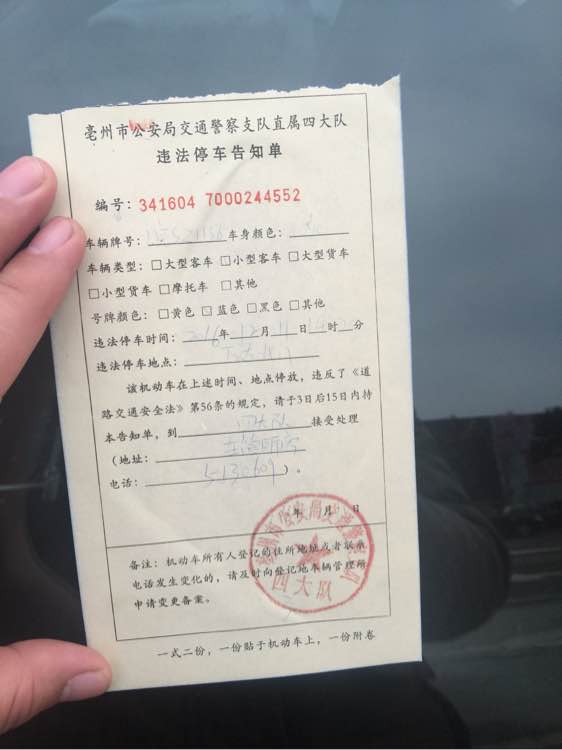 亳州市公安局交通警察支队直属四大队
违法停车告知单
编号：341604 7000244552
车辆牌号： 车身颜色：
车辆类型：□大型客车 □小型客车 □大型货车
□小型货车 □摩托车 □其他
号牌颜色：□黄色 □蓝色 □黑色 □其他
违法停车时间：2016年12月11日 时 分
违法停车地点：
该机动车在上述时间、地点停放，违反了《道
路交通安全法》第56条的规定，请于3日后15日内持
本告知单，到四大队接受处理
（地址：
电话：5130609）。
年 月 日
备注：机动车所有人登记的住所地址或者联系
电话发生变化的，请及时向登记地车辆管理所
申请变更备案。
四大队
一式二份，一份贴于机动车上，一份附卷